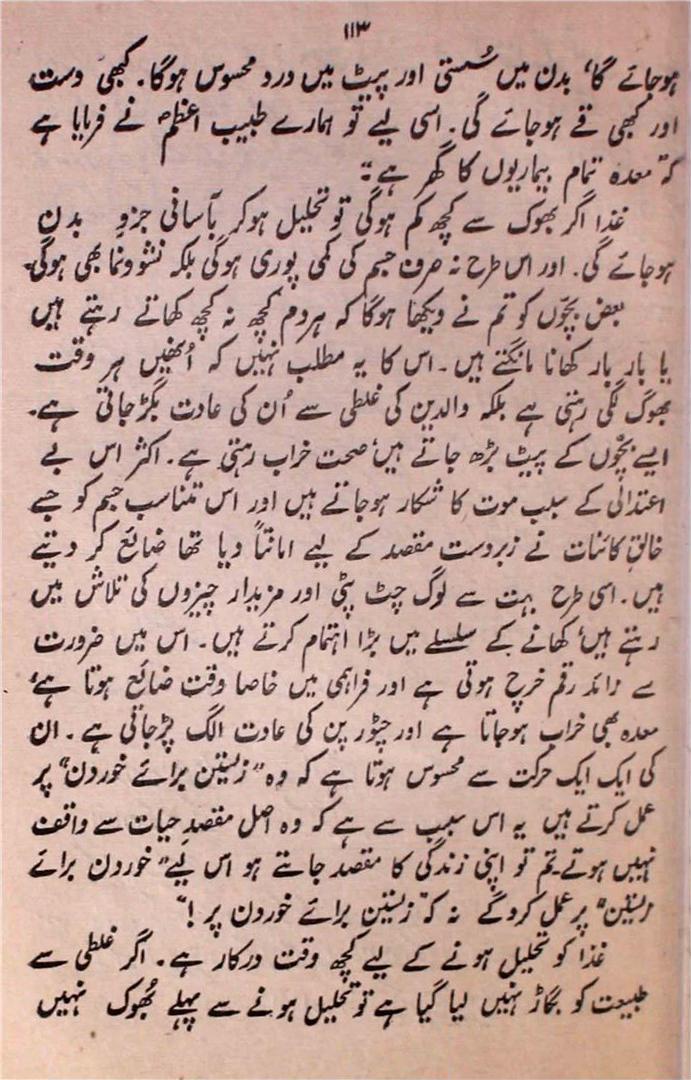 ۱۱۳
ہوجائے گا، بدن میں سُستی اور پیٹ میں درد محسوس ہوگا۔ کبھی دست
اور کبھی قے ہوجائے گی۔ اسی لیے تو ہمارے طبیب اعظمؐ نے فرمایا ہے
کہ "معدہ تمام بیماریوں کا گھر ہے"۔
غذا اگر بھوک سے کچھ کم ہوگی تو تحلیل ہوکر بآسانی جزو بدن
ہوجائے گی۔ اور اس طرح نہ صرف جسم کی کمی پوری ہوگی بلکہ نشوونما بھی ہوگی۔
بعض بچّوں کو تم نے دیکھا ہوگا کہ ہردم کچھ نہ کچھ کھاتے رہتے ہیں
یا بار بار کھانا مانگتے ہیں۔ اس کا یہ مطلب نہیں کہ اُنھیں ہر وقت
بھوک لگی رہتی ہے بلکہ والدین کی غلطی سے اُن کی عادت بگڑ جاتی ہے۔
ایسے بچّوں کے پیٹ بڑھ جاتے ہیں، صحت خراب رہتی ہے۔ اکثر اس بے
اعتدالی کے سبب موت کا شکار ہوجاتے ہیں اور اس متناسب جسم کو جسے
خالقِ کائنات نے زبردست مقصد کے لیے امانتاً دیا تھا ضائع کر دیتے
ہیں۔ اسی طرح بہت سے لوگ چٹ پٹی اور مزیدار چیزوں کی تلاش میں
رہتے ہیں، کھانے کے سلسلے میں بڑا اہتمام کرتے ہیں۔ اس میں ضرورت
سے زائد رقم خرچ ہوتی ہے اور فراہمی میں خاصا وقت ضائع ہوتا ہے،
معدہ بھی خراب ہوجاتا ہے اور چٹورپن کی عادت الگ پڑجاتی ہے۔ ان
کی ایک ایک حرکت سے محسوس ہوتا ہے کہ وہ "زیستن برائے خوردن" پر
عمل کرتے ہیں یہ اس سبب سے ہے کہ وہ اصل مقصدِ حیات سے واقف
نہیں ہوتے۔ تم تو اپنی زندگی کا مقصد جانتے ہو اس لیے "خوردن برائے
زیستن" پر عمل کروگے نہ کہ "زیستن برائے خوردن پر!"
غذا کو تحلیل ہونے کے لیے کچھ وقت درکار ہے۔ اگر غلطی سے
طبیعت کو بگاڑ نہیں لیا گیا ہے تو تحلیل ہونے سے پہلے بُھوک نہیں